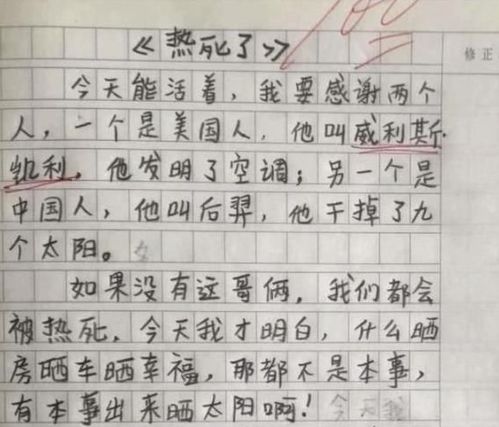 《热死了》
修正
今天能活着，我要感谢两个
人，一个是美国人，他叫威利斯·
凯利，他发明了空调；另一个是
中国人，他叫后羿，他干掉了九
个太阳。
如果没有这哥俩，我们都会
被热死，今天我才明白，什么晒
房晒车晒幸福，那都不是本事，
有本事出来晒太阳啊！今天我